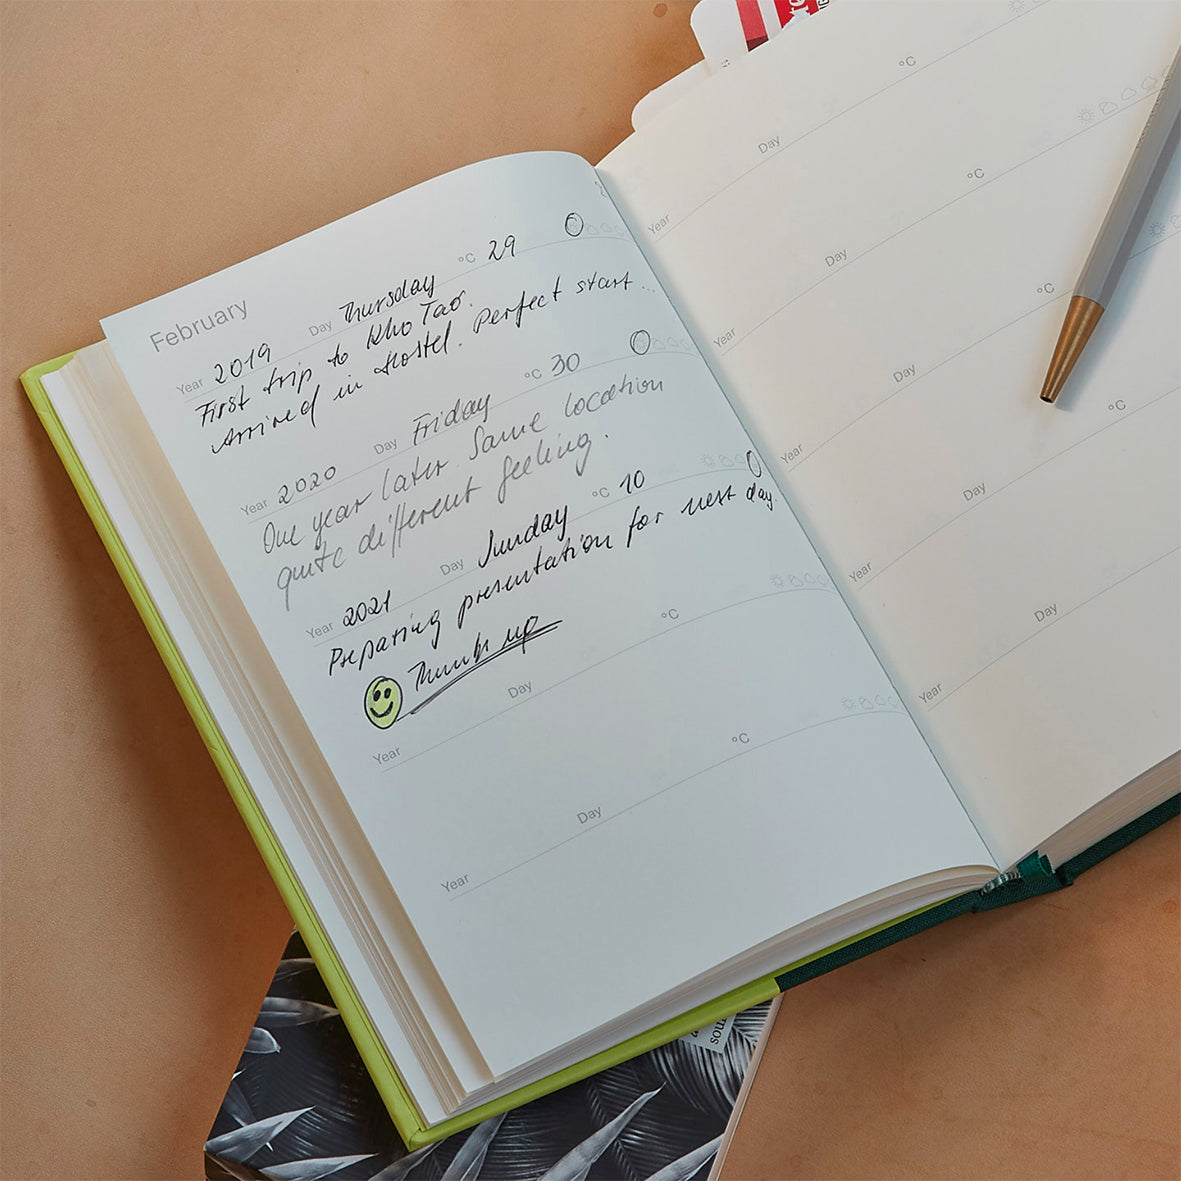 February
Year 2019 Day Thursday °C 29
First trip to Kho Tao.
Arrived in Hostel. Perfect start...
Year 2020 Day Friday °C 30
One year later. Same location
quite different feeling.
Year 2021 Day Sunday °C 10
Preparing presentation for next day.
Thumb up
Year Day °C
Year Day °C
Year Day °C
Year Day °C
Year Day °C
Year Day °C
Year Day °C
mos